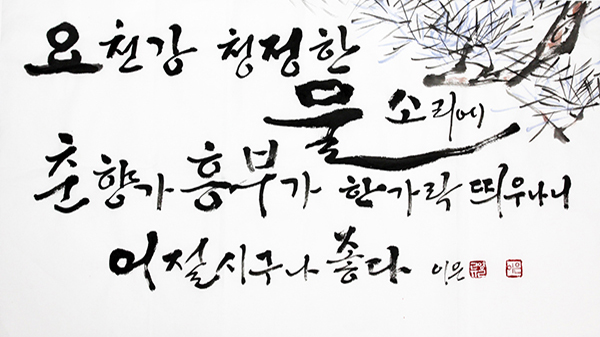 요천강 청정한
물 소리에
춘향가 흥부가 한가락 띄우나니
어절시구나 좋다 이은